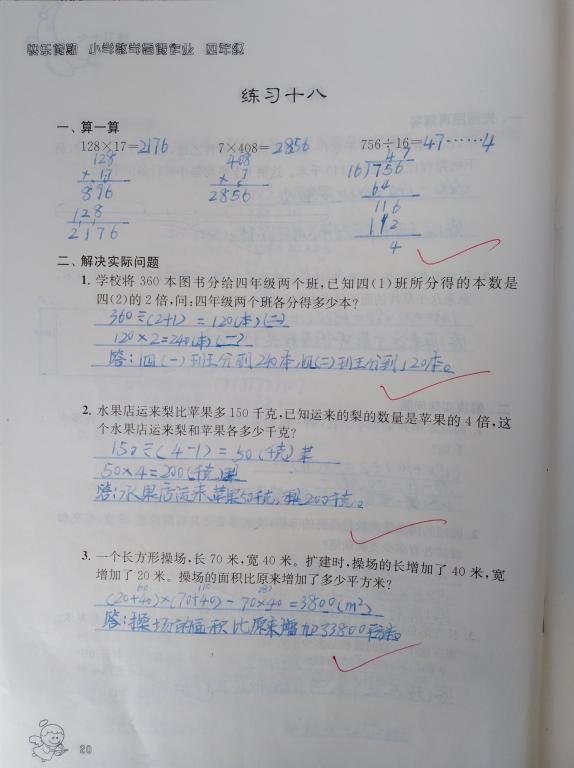 快乐假期 小学数学暑假作业 四年级
练习十八
一、算一算
128×17=2176 7×408=2856 756÷16=47……4
128 408 47
× 17 × 7 16√756
896 2856 64
128 116
2176 112
4
二、解决实际问题
1. 学校将 360 本图书分给四年级两个班,已知四(1)班所分得的本数是
四(2)的 2 倍,问:四年级两个班各分得多少本?
360÷(2+1)=120(本)(二)
120×2=240(本)(一)
答:四(一)班分到240本,四(二)班分到120本。
2. 水果店运来梨比苹果多 150 千克,已知运来的梨的数量是苹果的 4 倍,这
个水果店运来梨和苹果各多少千克?
150÷(4-1)=50(千克)苹
50×4=200(千克)梨
答:水果店运来苹果50千克,梨200千克。
3. 一个长方形操场,长 70 米,宽 40 米。扩建时,操场的长增加了 40 米,宽
增加了 20 米。操场的面积比原来增加了多少平方米?
60 110
(20+40)×(70+40)-70×40=3800(m²)
答:操场的面积比原来增加了3800平方米。
20